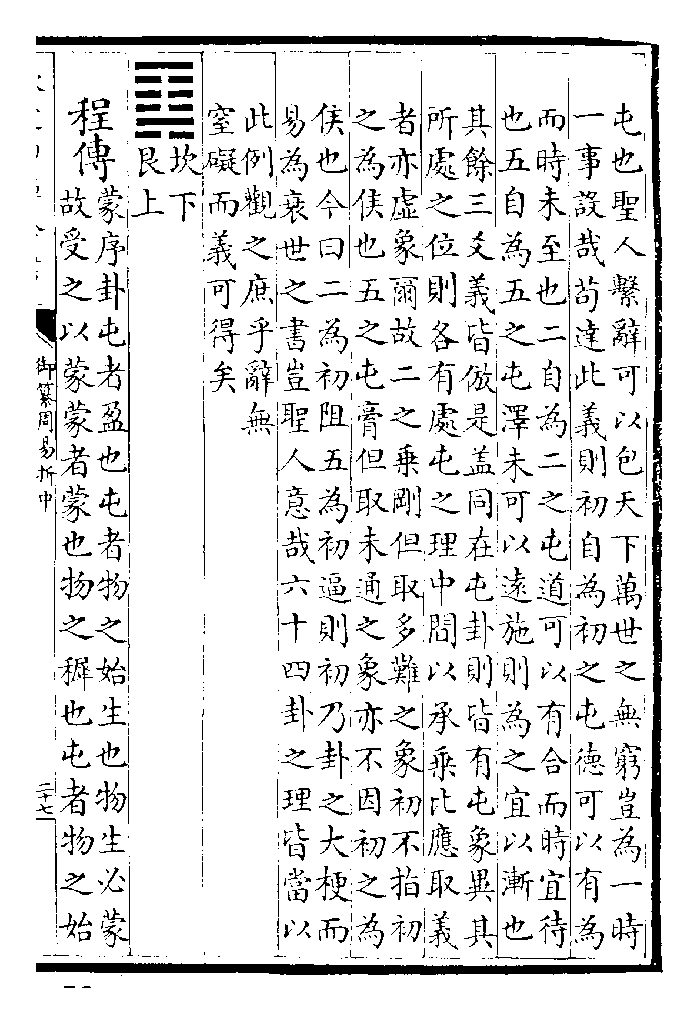 屯也聖人繫辭可以包天下萬世之無窮豈為一時
一事設哉苟達此義則初自為初之屯德可以有為
而時未至也二自為二之屯道可以有合而時宜待
也五自為五之屯澤未可以遠施則為之宜以漸也
其餘三爻義皆倣是蓋同在屯卦則皆有屯象異其
所處之位則各有處屯之理中間以承乘比應取義
者亦虛象爾故二之乘剛但取多難之象初不指初
之為侯也五之屯膏但取未通之象亦不因初之為
侯也今曰二為初阻五為初逼則初乃卦之大梗而
易為衰世之書豈聖人意哉六十四卦之理皆當以
此例觀之庶乎辭無
窒礙而義可得矣
坎下
艮上
程傳
蒙序卦屯者盈也屯者物之始生也物生必蒙
故受之以蒙蒙者蒙也物之穉也屯者物之始
御纂周易折中
二十七